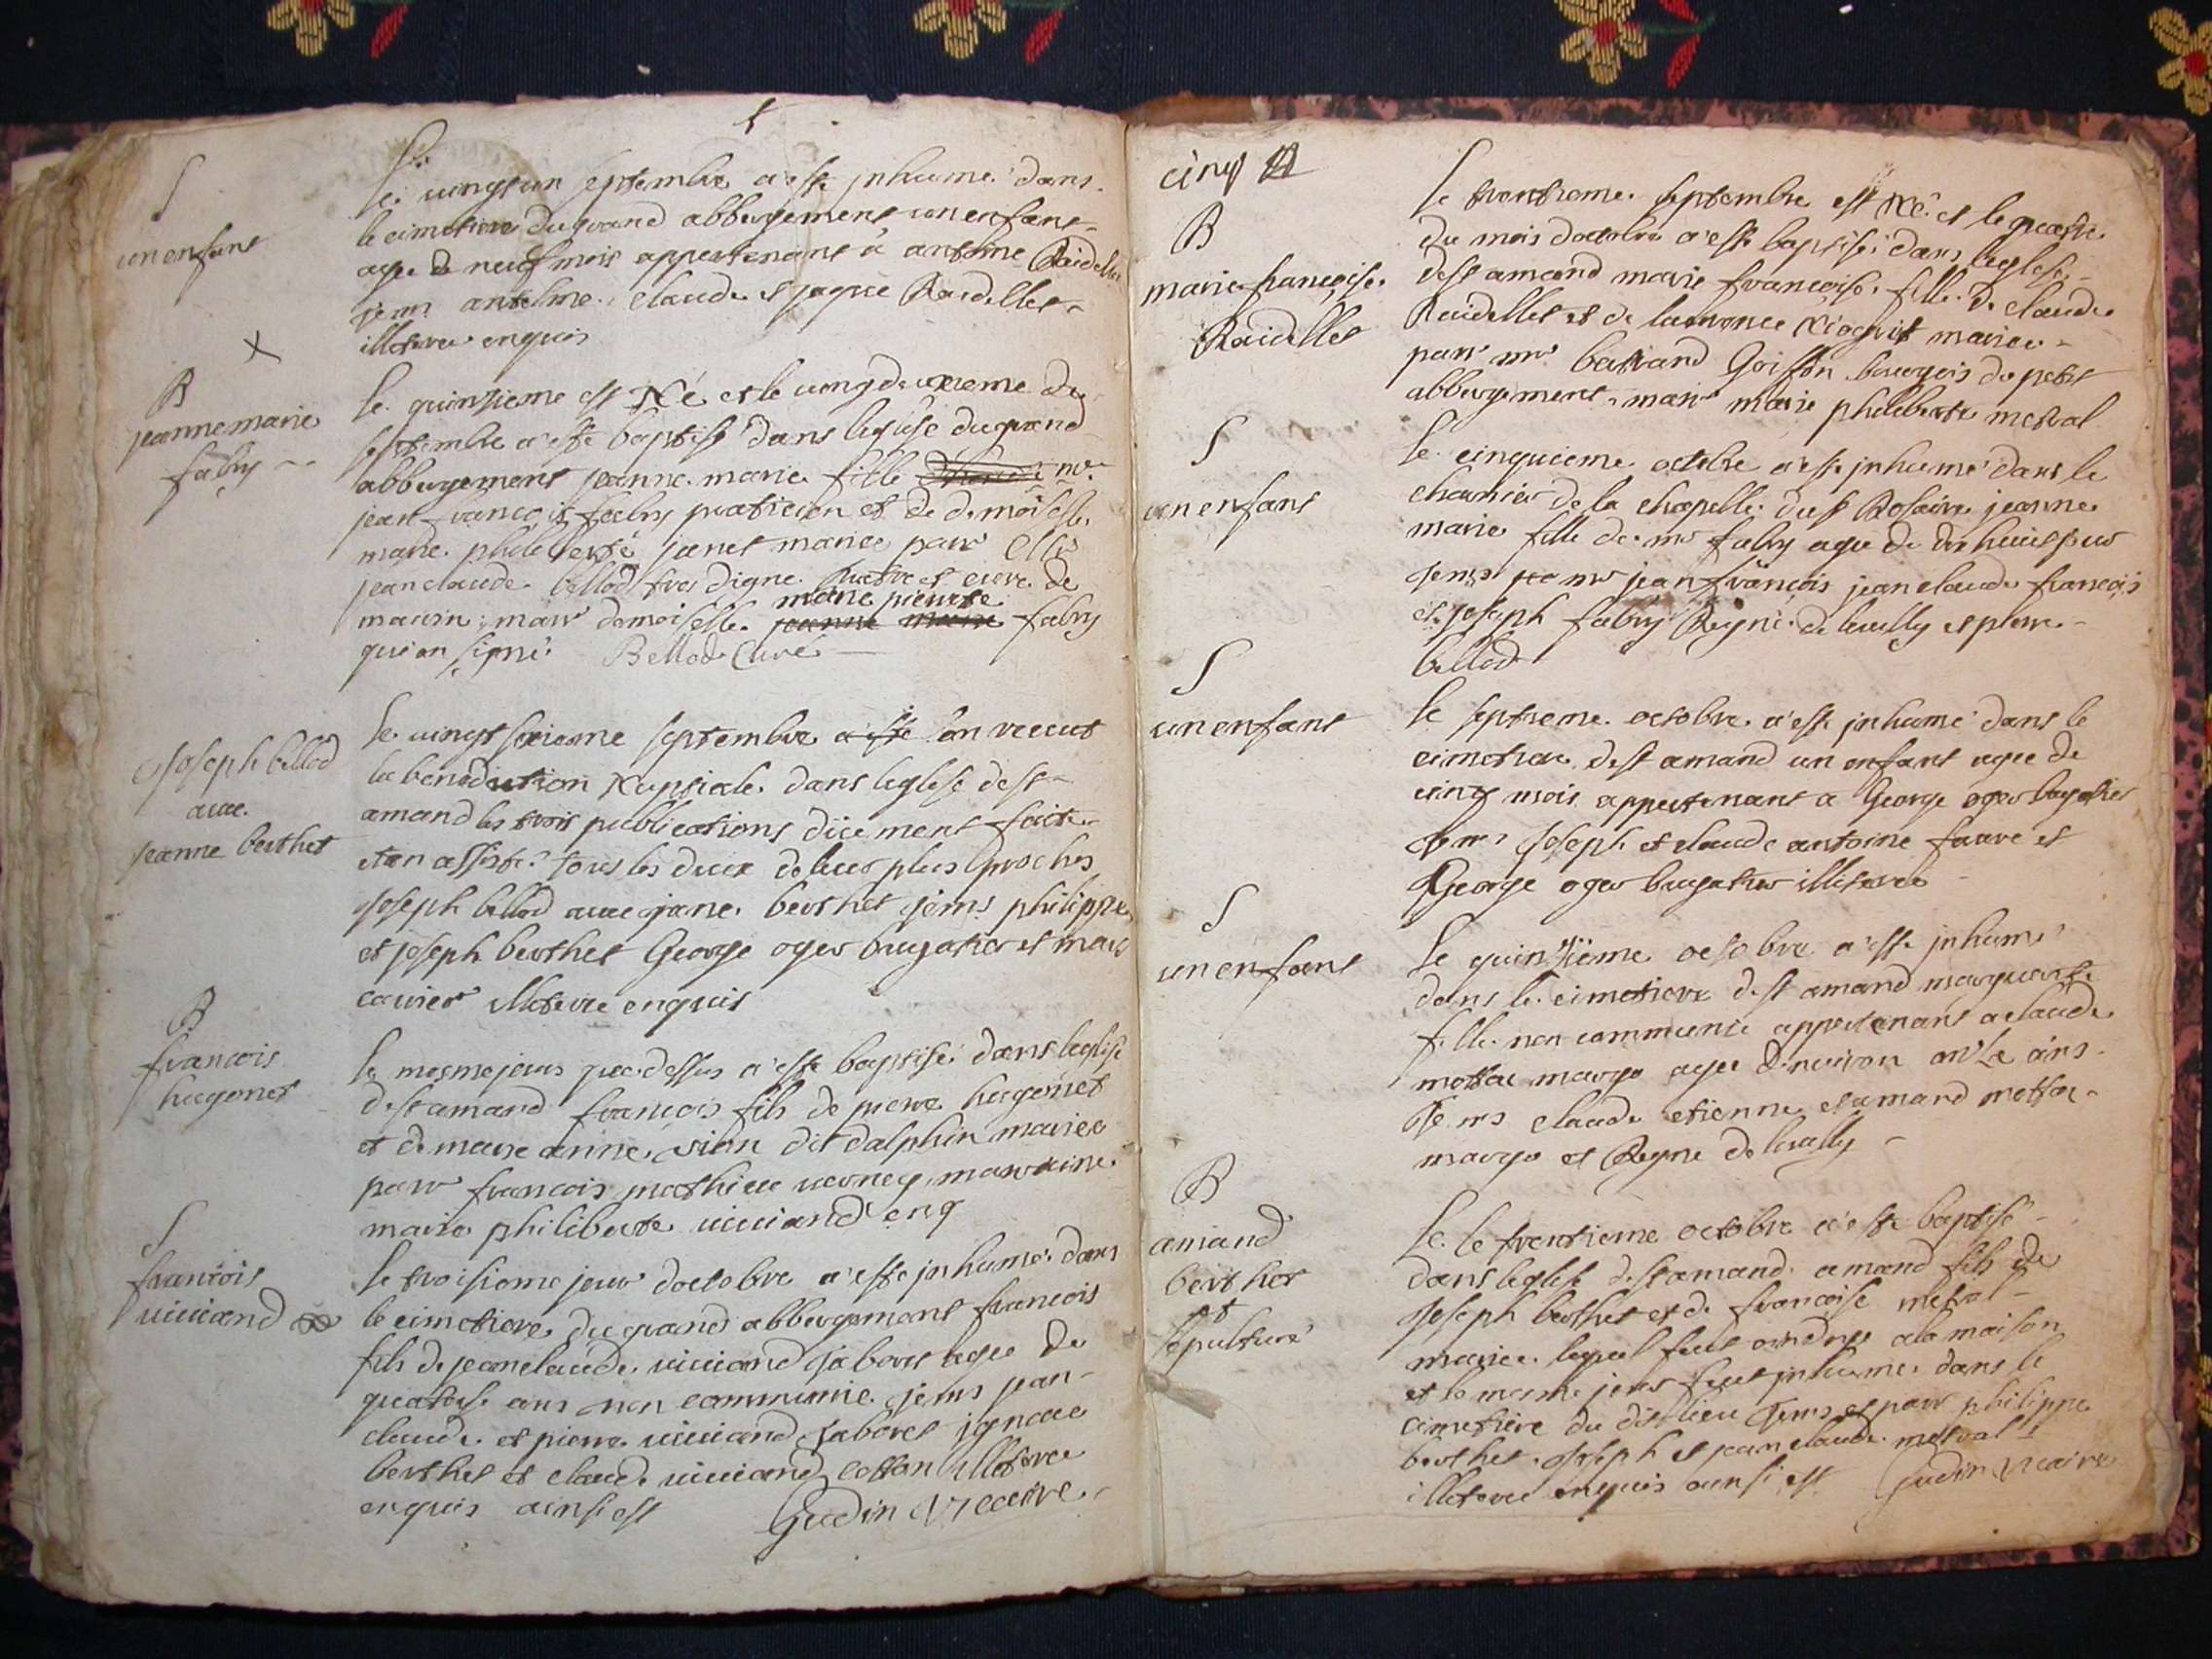 S
un enfant
Le vingt un septembre a esté jnhumé dans
le cimetiere du grand abbergement un enfant
agée de neuf mois appertenant à antoine Raidellet
anthelme claude et jaque Raidellet
illiterée enquis
B
jeanne marie
fabry
Le quinsieme est Né et le vingdeuxieme de
septembre a esté baptisé dans leglise du grand
abbergement jeanne marie fille mr
jean francois fabry praticien et de demoiselle
marie philiberte janet mariee parr
jean claude bellod tres digne pretre et cure de
marr demoiselle marie pierrette jeanne marie fabry
qui on signé Bellod Curé
joseph bellod
avec
jeanne berthet
Le vingt septembre a esté on receut
la benediction Nuptiale dans leglise de st
amand les trois publications düement faite
assisté tous les deux de leur plus proches
joseph bellod avec jane berthet tems philippe
et joseph berthet George oger brugatier et
illiterée enquis
B
francois
hugonet
le mesme jour que dessus a esté baptisé dans leglise
de st amand francois fils de pierre hugonet
et de marie anne vion dit dalphin mariee
parr francois mathieu marraine
marie philiberte viviand enq
S
francois
viviand
le troisieme jour doctobre a esté jnhumé dans
le cimetiere du grand abbergement francois
fils de jean claude viviand jaboret agée de
quatorse ans non communie tems jean
claude et pierre viviand jaboret jgnace
berthet et claude viviand cotton illiterée
enquis ainsi est Gudin Vicaire
cinq
B
marie francoise
Raidellet
le trentieme septembre est Né et le quatre
du mois doctobre a esté baptisé dans leglese
de st amand marie francoise fille de claude
Raidellet et de mariee
parr mr Goiffon bourgois du petit
abbergement marr marie philiberte metral
S
un enfant
le cinquieme octobre a esté jnhumé dans le
charnier de la chapelle du st Rosaire jeanne
marie fille de mr fabry agée de dix huict jour
tems mr jean francois jean claude francois
et joseph fabry Reyne de leully et pierre
bellod
S
un enfant
le septieme octobre a esté jnhumé dans le
cimetiere de st amand un enfant agée de
cinq mois appertenant a George oger brugatier
tems joseph et claude antoine favre et
George oger brugatier illiteree
S
un enfant
le quinsiéme octobre a esté jnhumé
dans le cimetiere de st amand marguerite
fille non communie appertenant a claude
agée denviron onze ans
tems claude etienne et amand
et Reyne de leully
B
amand
berthet
et
sepulture
Le le trentieme octobre a esté baptisé
dans leglise de st amand amand fils de
joseph berthet et de francoise metral
mariee lequel fut ondoye a la maison
et le mesme jour fut jnhumé dans le
cimetiere du dit lieu tems et parr philippe
berthet joseph et jean claude metral
illiterée enquis ainsi est Gudin Vicaire